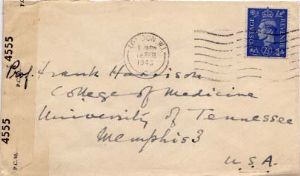 4555
4555
P.C. 90
LONDON. W.1
FEB
194
POSTAGE
REVENUE
2½D
Prof. Frank Harrison
College of Medicine
University of Tennessee
Memphis 3
U.S.A.